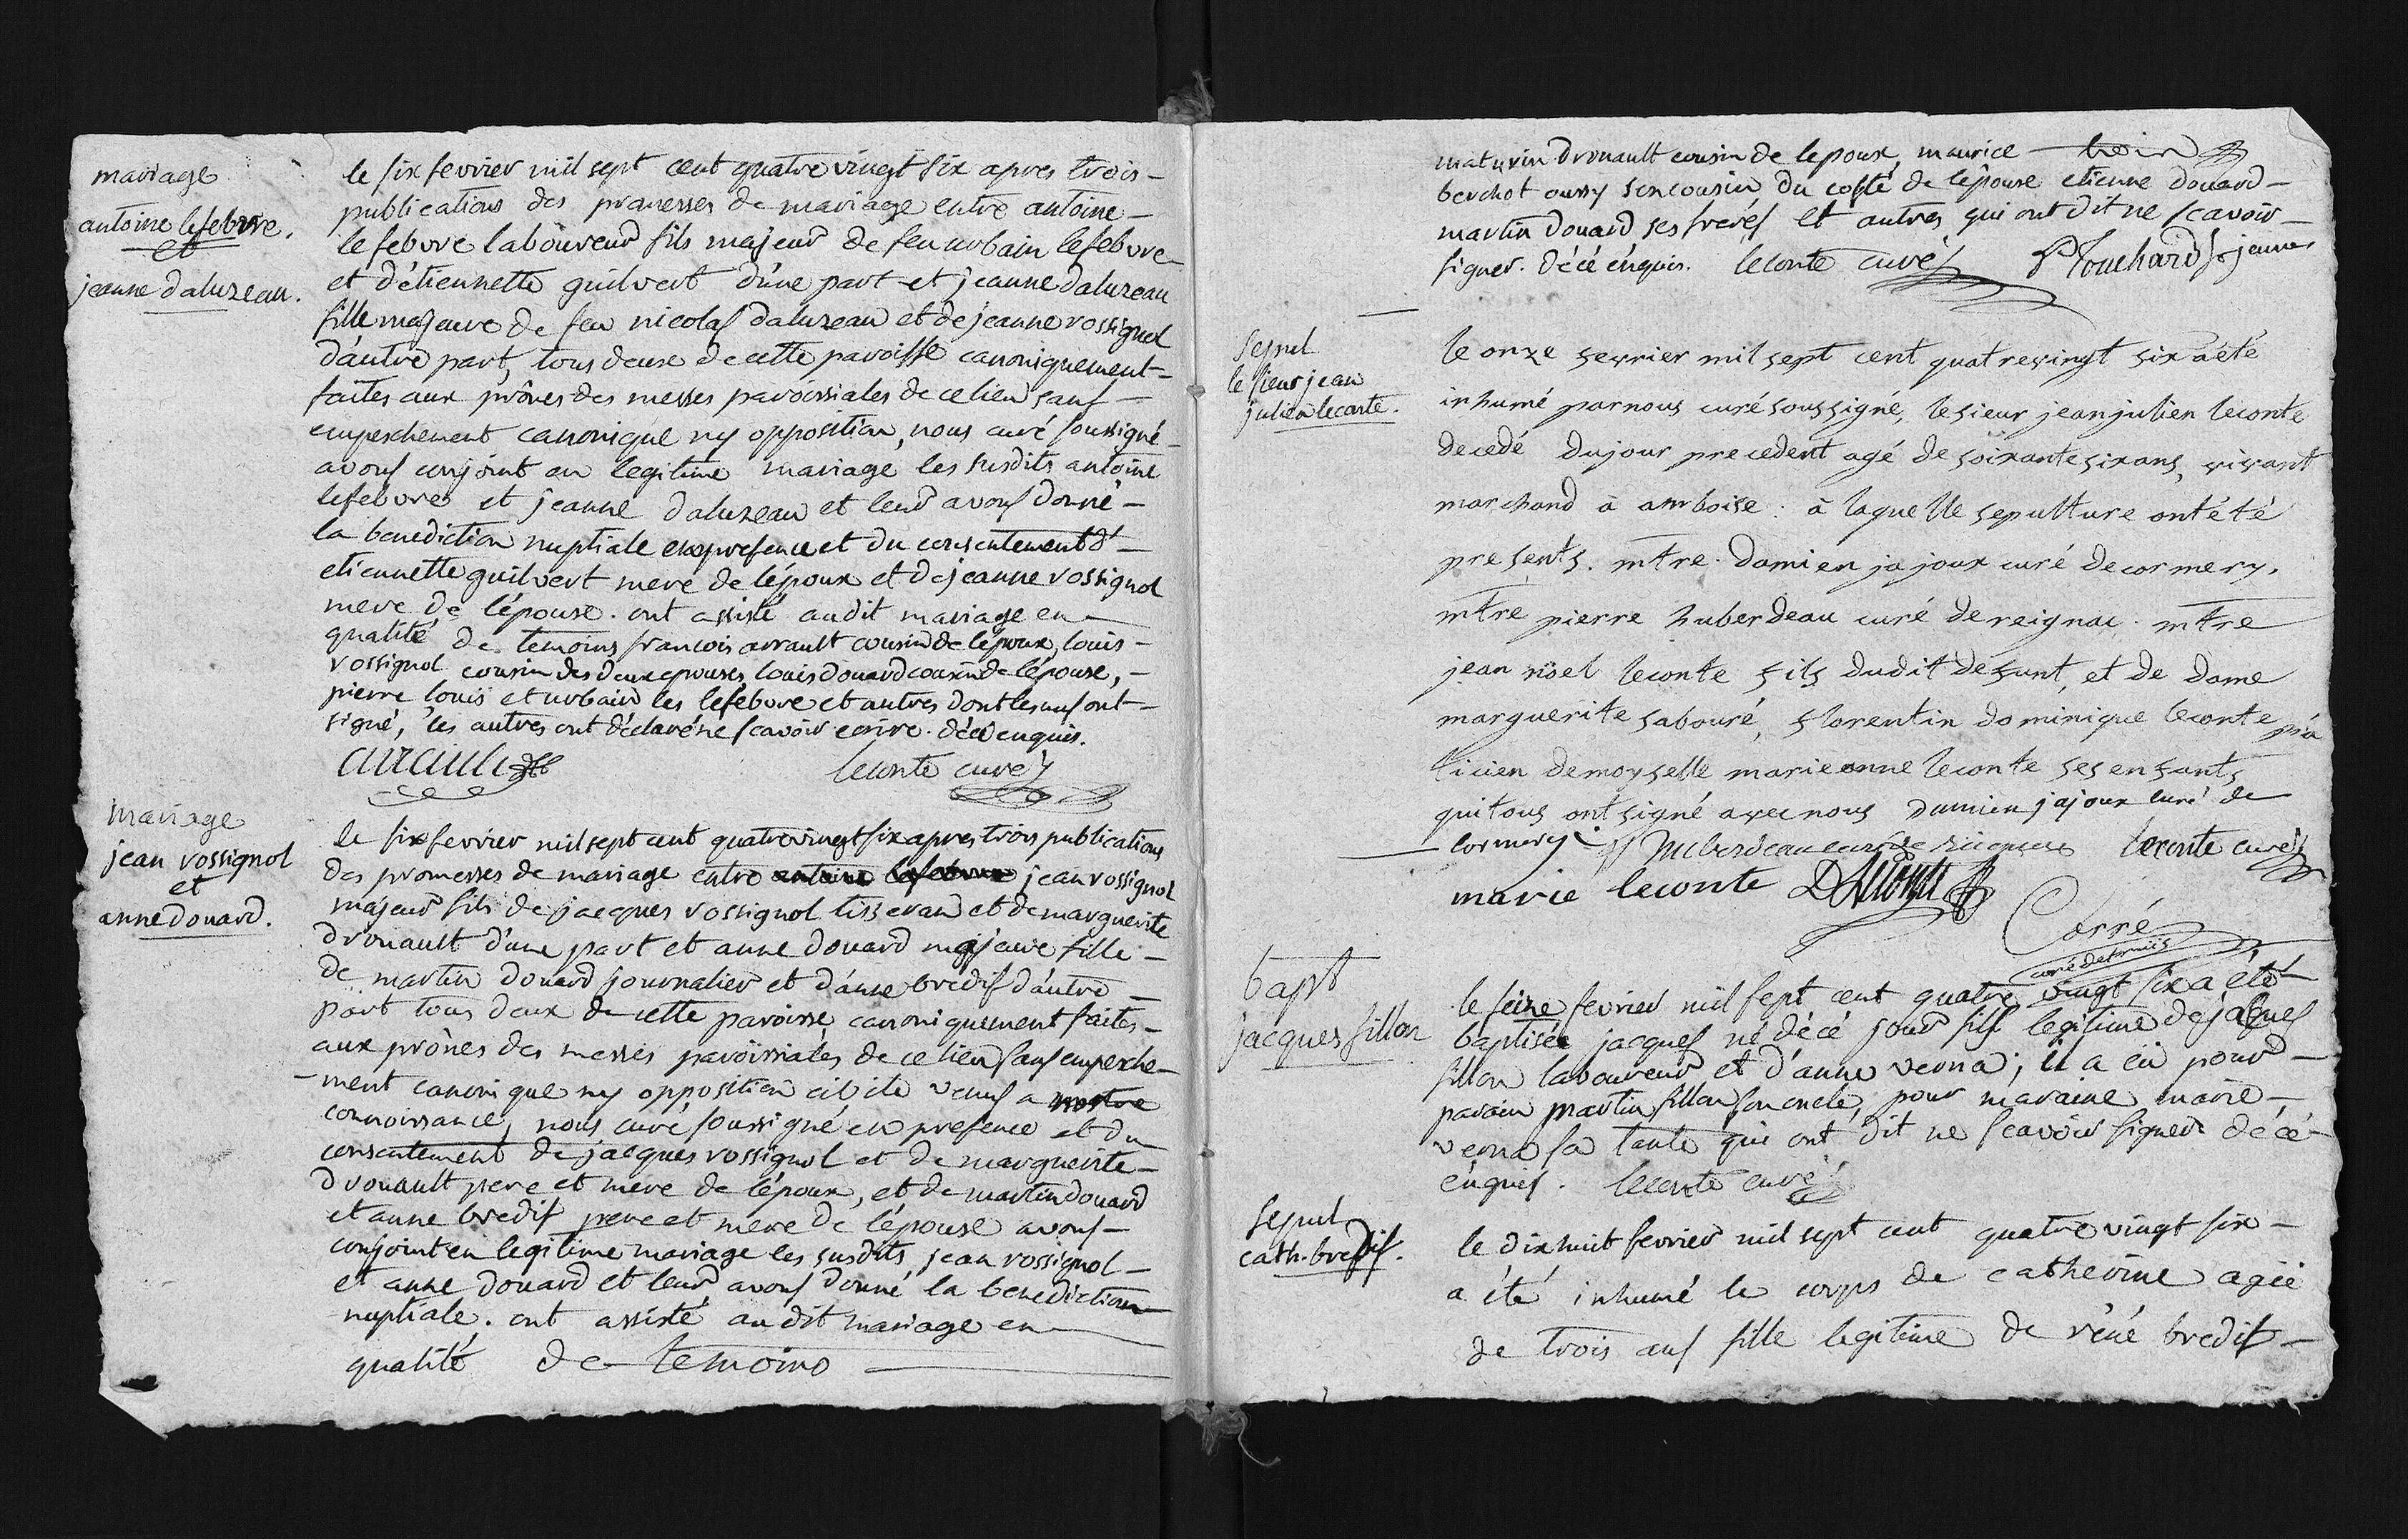 mariage
antoine lefebvre.
et
jeanne daluzeau.
le six fevrier mil sept cent quatre vingt six apres trois
publications des promesses de mariage entre antoine
lefebvre laboureur fils majeur de feu urbain lefebvre
et d'étiennette guilvert d'une part et jeanne daluzeau
fille majeure de feu nicolas daluzeau et de jeanne rossignol
d'autre part, tous deux de cette paroisse canoniquement
faites aux prônes des messes paroissiales de ce lieu sans
empeschement canonique ny opposition, nous curé soussigné
avons conjoint en legitime mariage les susdits antoine
lefebvre et jeanne daluzeau et leur avons donné
la benediction nuptiale en presence et du consentement d'
etiennette guilvert mere de l'époux et de jeanne rossignol
mere de l'épouse. ont assisté audit mariage en
qualité de temoins francois arrault cousin de l'époux, louis
rossignol cousin des deux epouses, louis douard cousin de l'épouse,
pierre, louis et urbain les lefebvre et autres dont les uns ont
signé, les autres ont déclaré ne scavoir ecrire. de ce enquis.
arrault leconte curé
mariage
jean rossignol
et
anne douard.
le six fevrier mil sept cent quatre vingt six apres trois publications
des promesses de mariage entre antoine lefebvre jean rossignol
majeur fils de jacques rossignol tisserand et de marguerite
drouault d'une part et anne douard majeure fille
de martin douard journalier et d'anne bredif d'autre
part tous deux de cette paroisse, canoniquement faites
aux prônes des messes paroissiales de ce lieu sans empesche-
ment canonique ny opposition civile venus a nostre
connoissance, nous curé soussigné en presence et du
consentement de jacques rossignol et de marguerite
drouault pere et mere de l'époux, et de martin douard
et anne bredif pere et mere de l'épouse avons
conjoint en legitime mariage les susdits jean rossignol
et anne douard et leur avons donné la benediction
nuptiale. ont assisté audit mariage en
qualité de temoins
maturin drouault cousin de l'epoux, maurice
berchot aussy son cousin, du costé de l'épouse etienne douard
martin douard ses freres et autres qui ont dit ne scavoir
signer. de ce enquis. leconte curé P Touchard jeune
Sepul
le sieur jean
julien leconte.
le onze fevrier mil sept cent quatre vingt six a été
inhumé par nous curé soussigné, le sieur jean julien leconte
decedé du jour precedent agé de soixante six ans, vivant
marchand à amboise. à laquelle sepulture ont été
presents. mtre. damien jajoux curé de cormery,
mtre pierre huberdeau curé de reignac. mtre
jean noël leconte fils dudit defunt, et de dame
marguerite sabouré, florentin dominique leconte pra
ticien demoyselle marie anne leconte ses enfants
qui tous ont signé avec nous damien jajoux curé de
Cormery huberdeau curé de leconte curé
marie leconte D Leconte
Carré
bapt
jacques fillon
le seize fevrier mil sept cent quatre vingt six a été
baptisé jacques né de ce jour fils legitime de jacques
fillon laboureur et d'anne verna; il a eü pour
parain martin fillon son oncle, pour maraine marie
verna sa tante qui ont dit ne scavoir signer de ce
enquis. leconte curé
Sepul
cath. bredif.
le dix huit fevrier mil sept cent quatre vingt six
a été inhumé le corps de catherine agée
de trois ans fille legitime de réné bredif